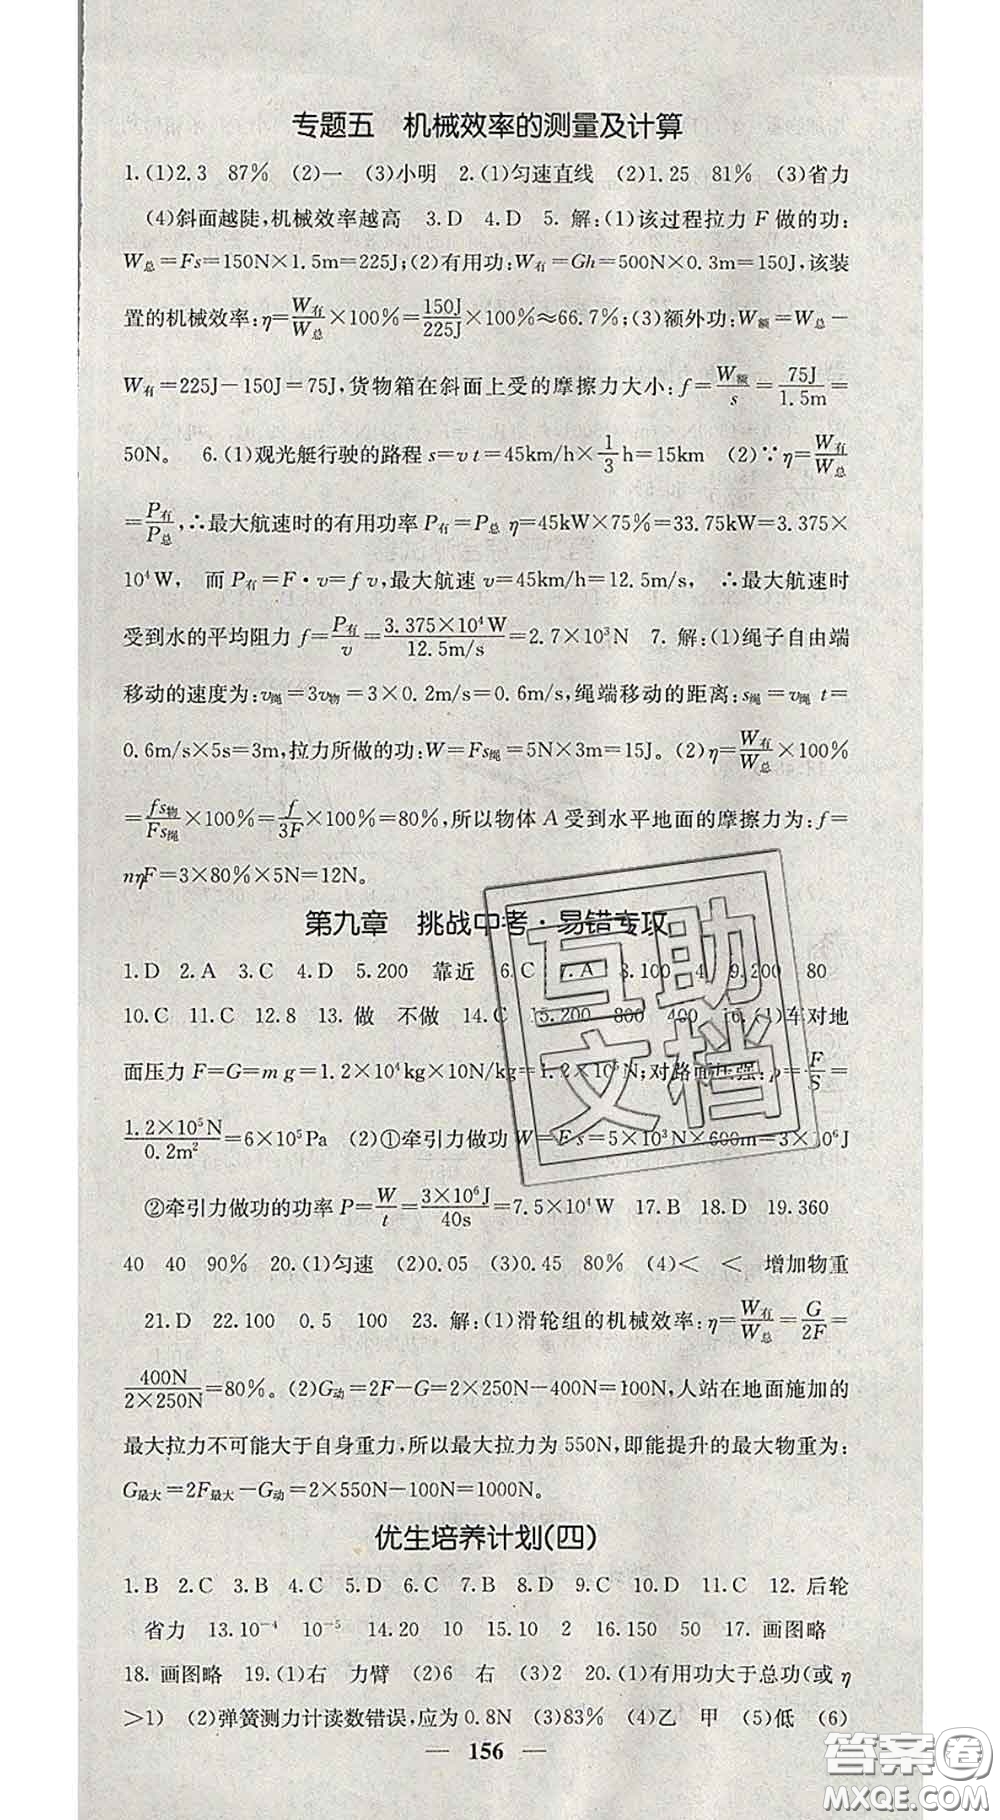 专题五 机械效率的测量及计算
1.(1)2.3 87% (2)一 (3)小明 2.(1)匀速直线 (2)1.25 81% (3)省力
(4)斜面越陡,机械效率越高 3.D 4.D 5.解:(1)该过程拉力F做的功:
W总=Fs=150N×1.5m=225J;(2)有用功:W有=Gh=500N×0.3m=150J,该装
置的机械效率:η=W有/W总×100%=150J/225J×100%≈66.7%;(3)额外功:W额=W总-
W有=225J-150J=75J,货物箱在斜面上受的摩擦力大小:f=W额/s=75J/1.5m=
50N。 6.(1)观光艇行驶的路程s=vt=45km/h×1/3h=15km (2)∵η=W有/W总
=P有/P总,∴最大航速时的有用功率P有=P总η=45kW×75%=33.75kW=3.375×
10⁴W, 而P有=F·v=fv,最大航速v=45km/h=12.5m/s, ∴最大航速时
受到水的平均阻力f=P有/v=3.375×10⁴W/12.5m/s=2.7×10³N 7.解:(1)绳子自由端
移动的速度为:v绳=3v物=3×0.2m/s=0.6m/s,绳端移动的距离:s绳=v绳t=
0.6m/s×5s=3m,拉力所做的功:W=Fs绳=5N×3m=15J。(2)η=W有/W总×100%
=fs物/Fs绳×100%=f/3F×100%=80%,所以物体A受到水平地面的摩擦力为:f=
nηF=3×80%×5N=12N。
第九章 挑战中考·易错专攻
1.D 2.A 3.C 4.D 5.200 靠近 6.C 7.A 8.100 4 9.200 80
10.C 11.C 12.8 13.做 不做 14.C 15.200 800 400 16.(1)车对地
面压力F=G=mg=1.2×10⁴kg×10N/kg=1.2×10⁵N;对路面压强:p=F/S=
1.2×10⁵N/0.2m²=6×10⁵Pa (2)①牵引力做功W=Fs=5×10³N×600m=3×10⁶J
②牵引力做功的功率P=W/t=3×10⁶J/40s=7.5×10⁴W 17.B 18.D 19.360
40 40 90% 20.(1)匀速 (2)0.05 (3)0.45 80% (4)< < 增加物重
21.D 22.100 0.5 100 23.解:(1)滑轮组的机械效率:η=W有/W总=G/2F=
400N/2×250N=80%。(2)G动=2F-G=2×250N-400N=100N,人站在地面施加的
最大拉力不可能大于自身重力,所以最大拉力为550N,即能提升的最大物重为:
G最大=2F最大-G动=2×550N-100N=1000N。
优生培养计划(四)
1.B 2.C 3.B 4.C 5.D 6.C 7.B 8.D 9.C 10.D 11.C 12.后轮
省力 13.10⁻⁴ 10⁻⁵ 14.20 10 15.10 2 16.150 50 17.画图略
18.画图略 19.(1)右 力臂 (2)6 右 (3)2 20.(1)有用功大于总功(或η
>1) (2)弹簧测力计读数错误,应为0.8N (3)83% (4)乙 甲 (5)低 (6)
— 156 —
互助
文档
答案圈
MXQE.COM